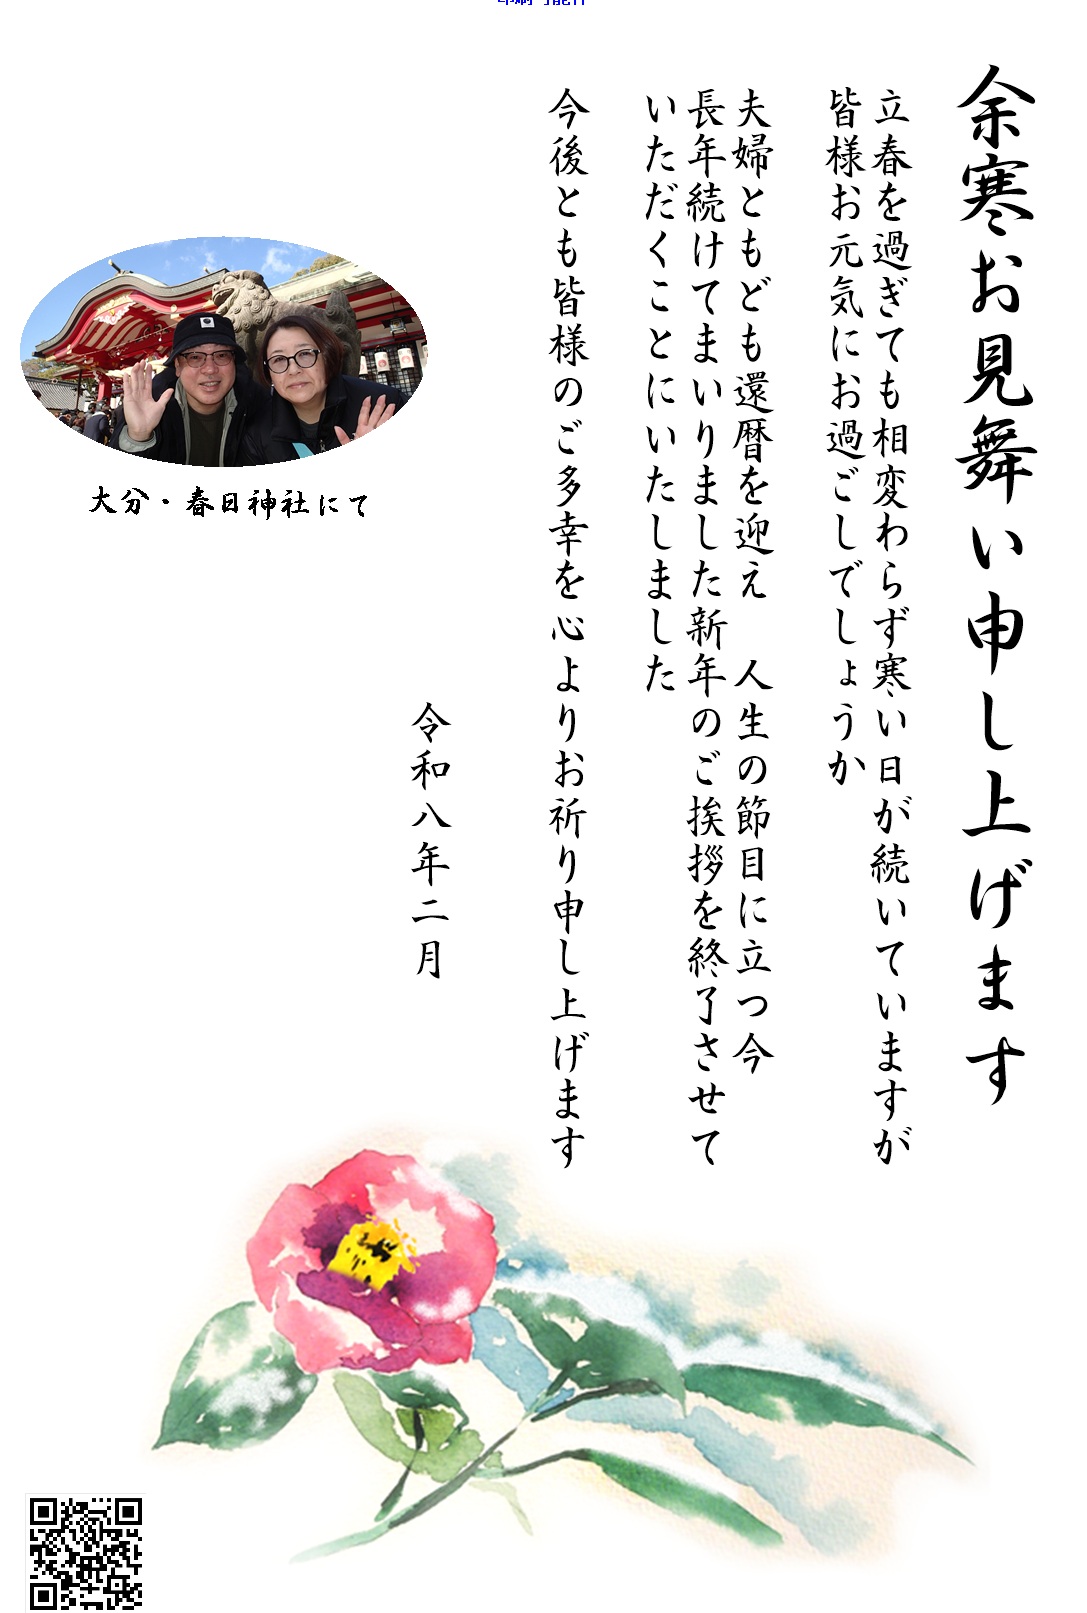 余寒お見舞い申し上げます
立春を過ぎても相変わらず寒い日が続いていますが
皆様お元気にお過ごしでしょうか
夫婦ともども還暦を迎え　人生の節目に立つ今
長年続けてまいりました新年のご挨拶を終了させて
いただくことにいたしました
今後とも皆様のご多幸を心よりお祈り申し上げます
令和八年二月
大分・春日神社にて